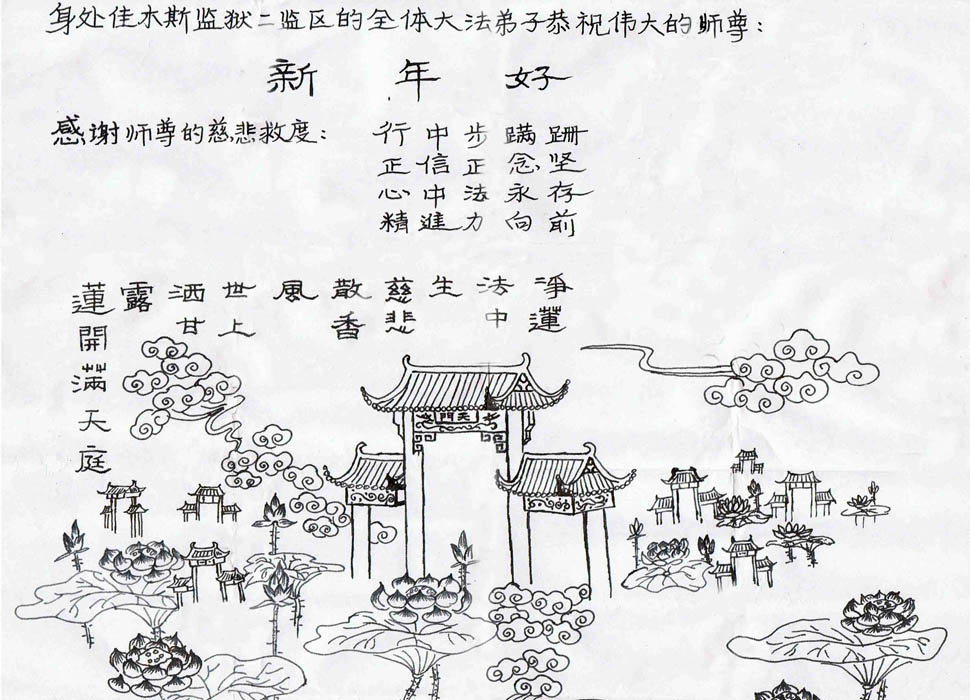 身处佳木斯监狱二监区的全体大法弟子恭祝伟大的师尊：
新 年 好
感谢师尊的慈悲救度：
行中步蹒跚
正信正念坚
心中法永存
精進力向前
淨蓮
法中
生
慈悲
散香
風
世上
洒甘
露
蓮開滿天庭
天門